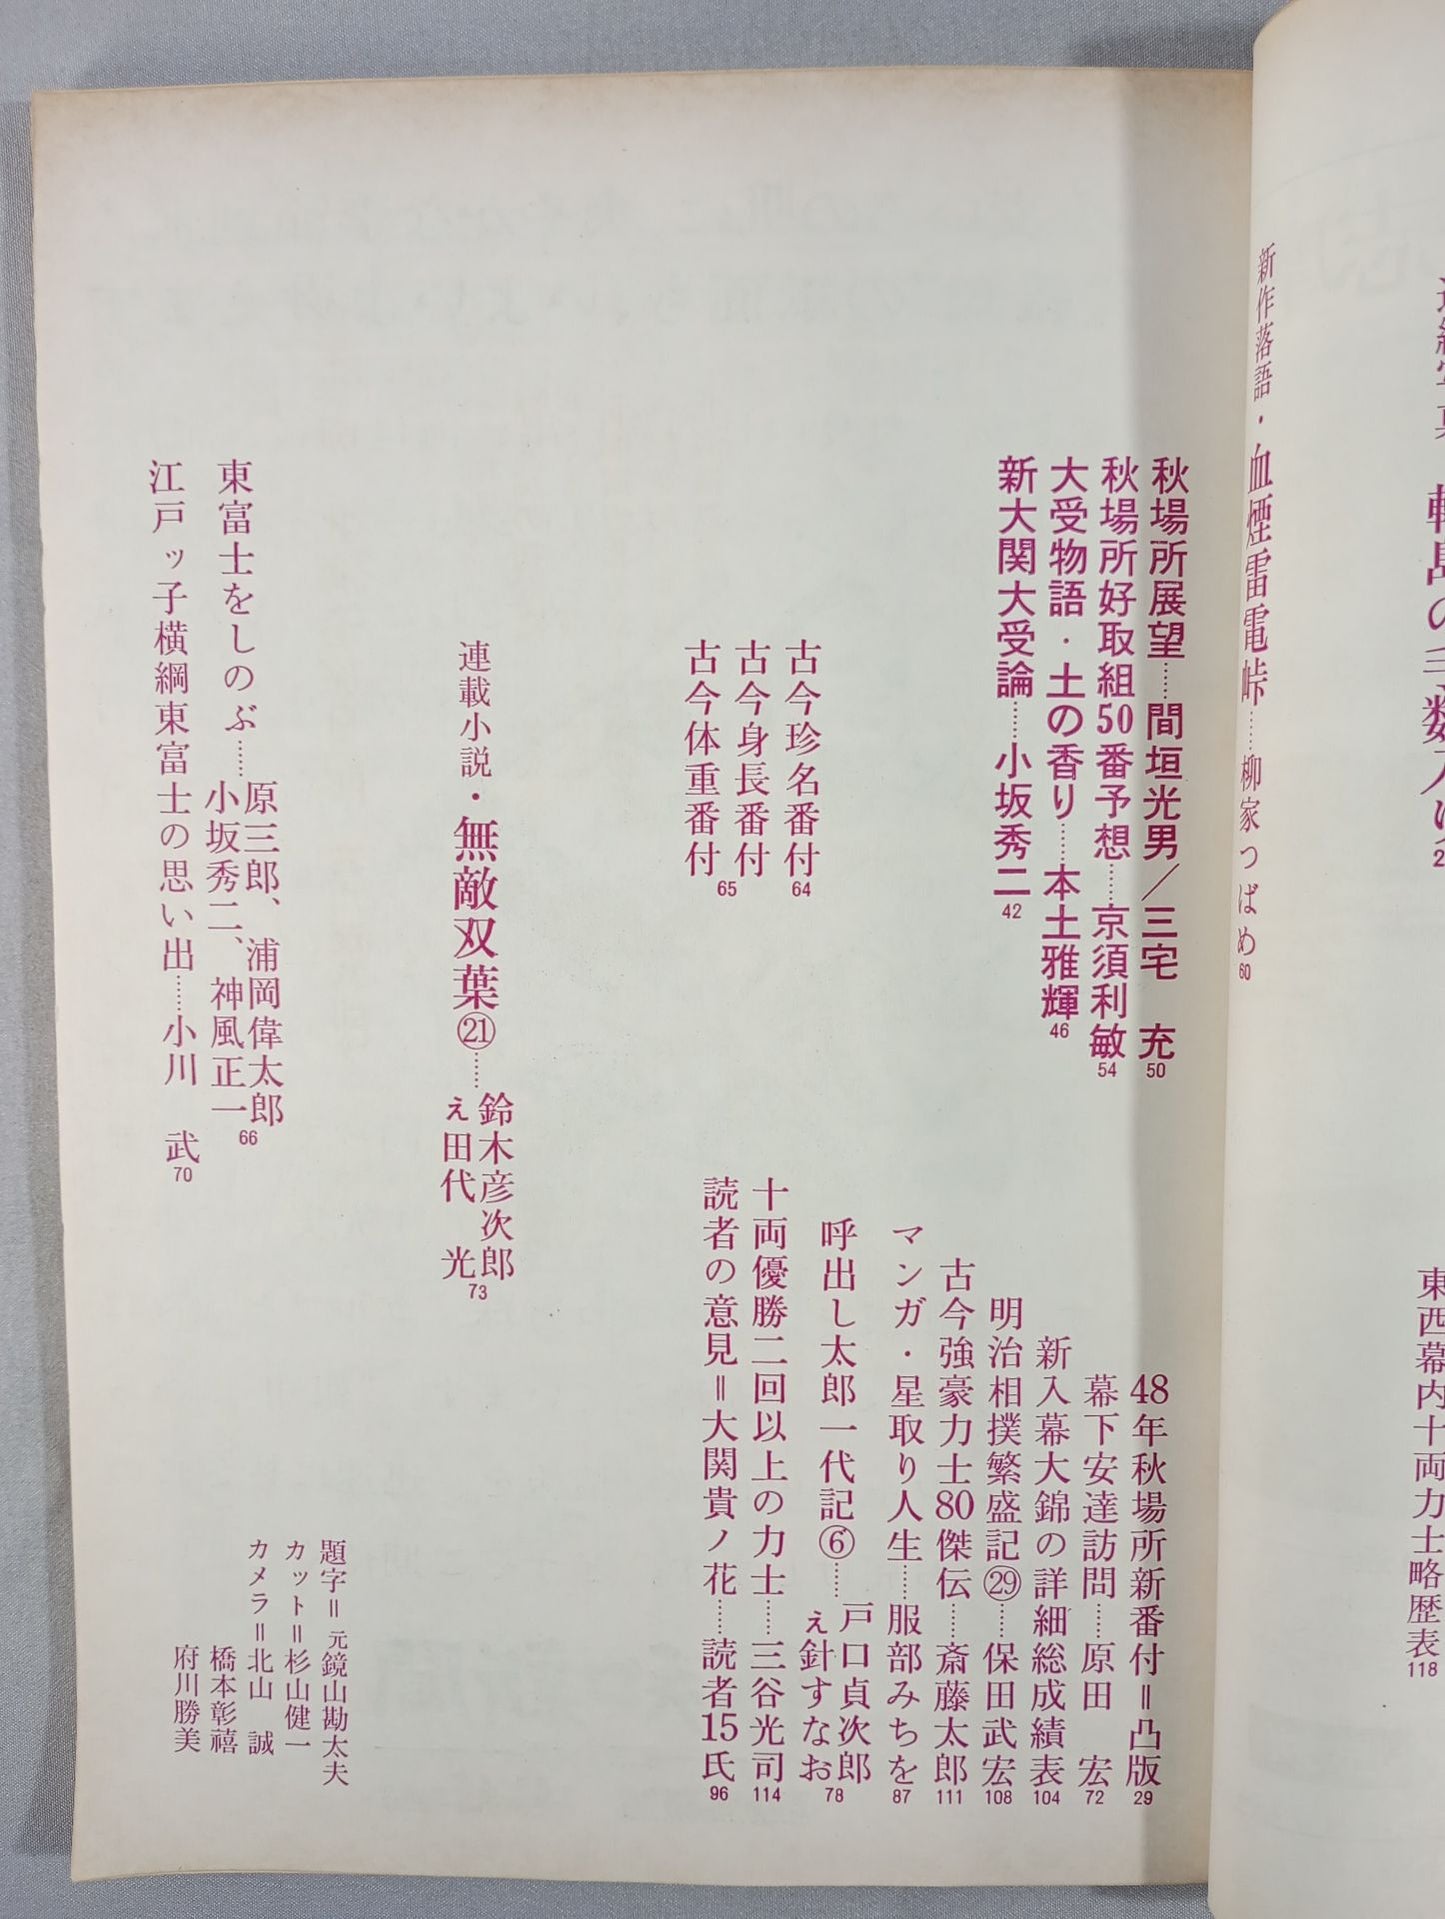 新作落語・血煙雷電峠……柳家つばめ 60
東西幕内十両力士略歴表 118
秋場所展望……間垣光男／三宅　充 50
秋場所好取組50番予想……京須利敏 54
大受物語・土の香り……本土雅輝 46
新大関大受論……小坂秀二 42
古今珍名番付 64
古今身長番付
古今体重番付 65
48年秋場所新番付＝凸版 29
幕下安達訪問……原田　宏 72
新入幕大錦の詳細総成績表 104
明治相撲繁盛記㉙……保田武宏 108
古今強豪力士80傑伝……斎藤太郎 111
マンガ・星取り人生……服部みちを 87
呼出し太郎一代記⑥……戸口貞次郎
え針すなお 78
十両優勝二回以上の力士……三谷光司 114
読者の意見＝大関貴ノ花……読者15氏 96
連載小説・無敵双葉㉑……鈴木彦次郎
え田代　光 73
東富士をしのぶ……原三郎、浦岡偉太郎
小坂秀二、神風正一 66
江戸ッ子横綱東富士の思い出……小川　武 70
題字＝元鏡山勘太夫
カット＝杉山健一
カメラ＝北山　誠
橋本彰禧
府川勝美